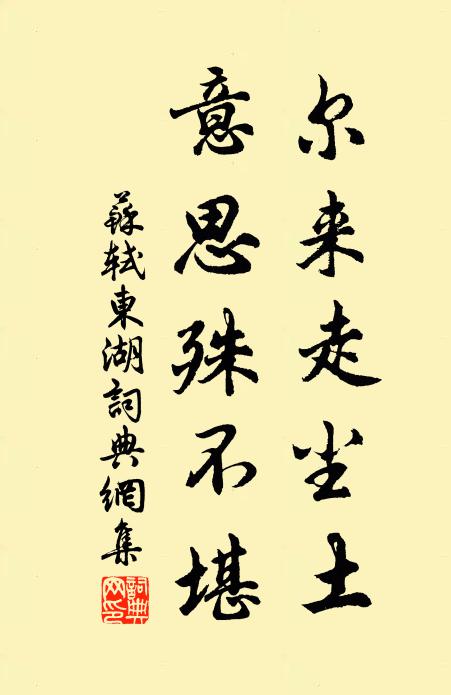 尔来走尘土
意思殊不堪
蘇軾東湖詞典網集
詞典网印